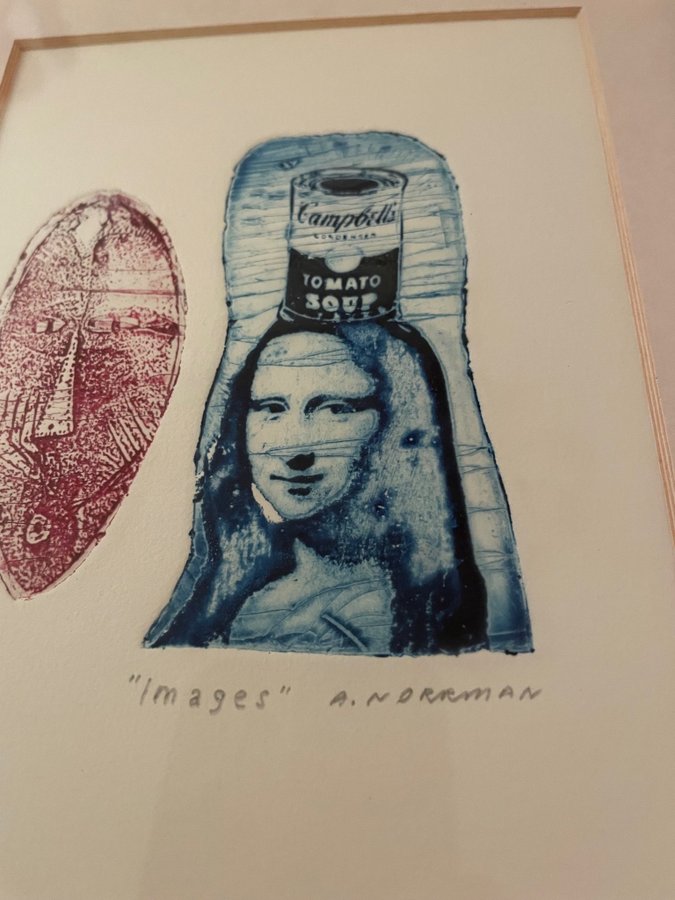 Campbell's
CONDENSED
TOMATO
SOUP
"Images" A. NORRMAN